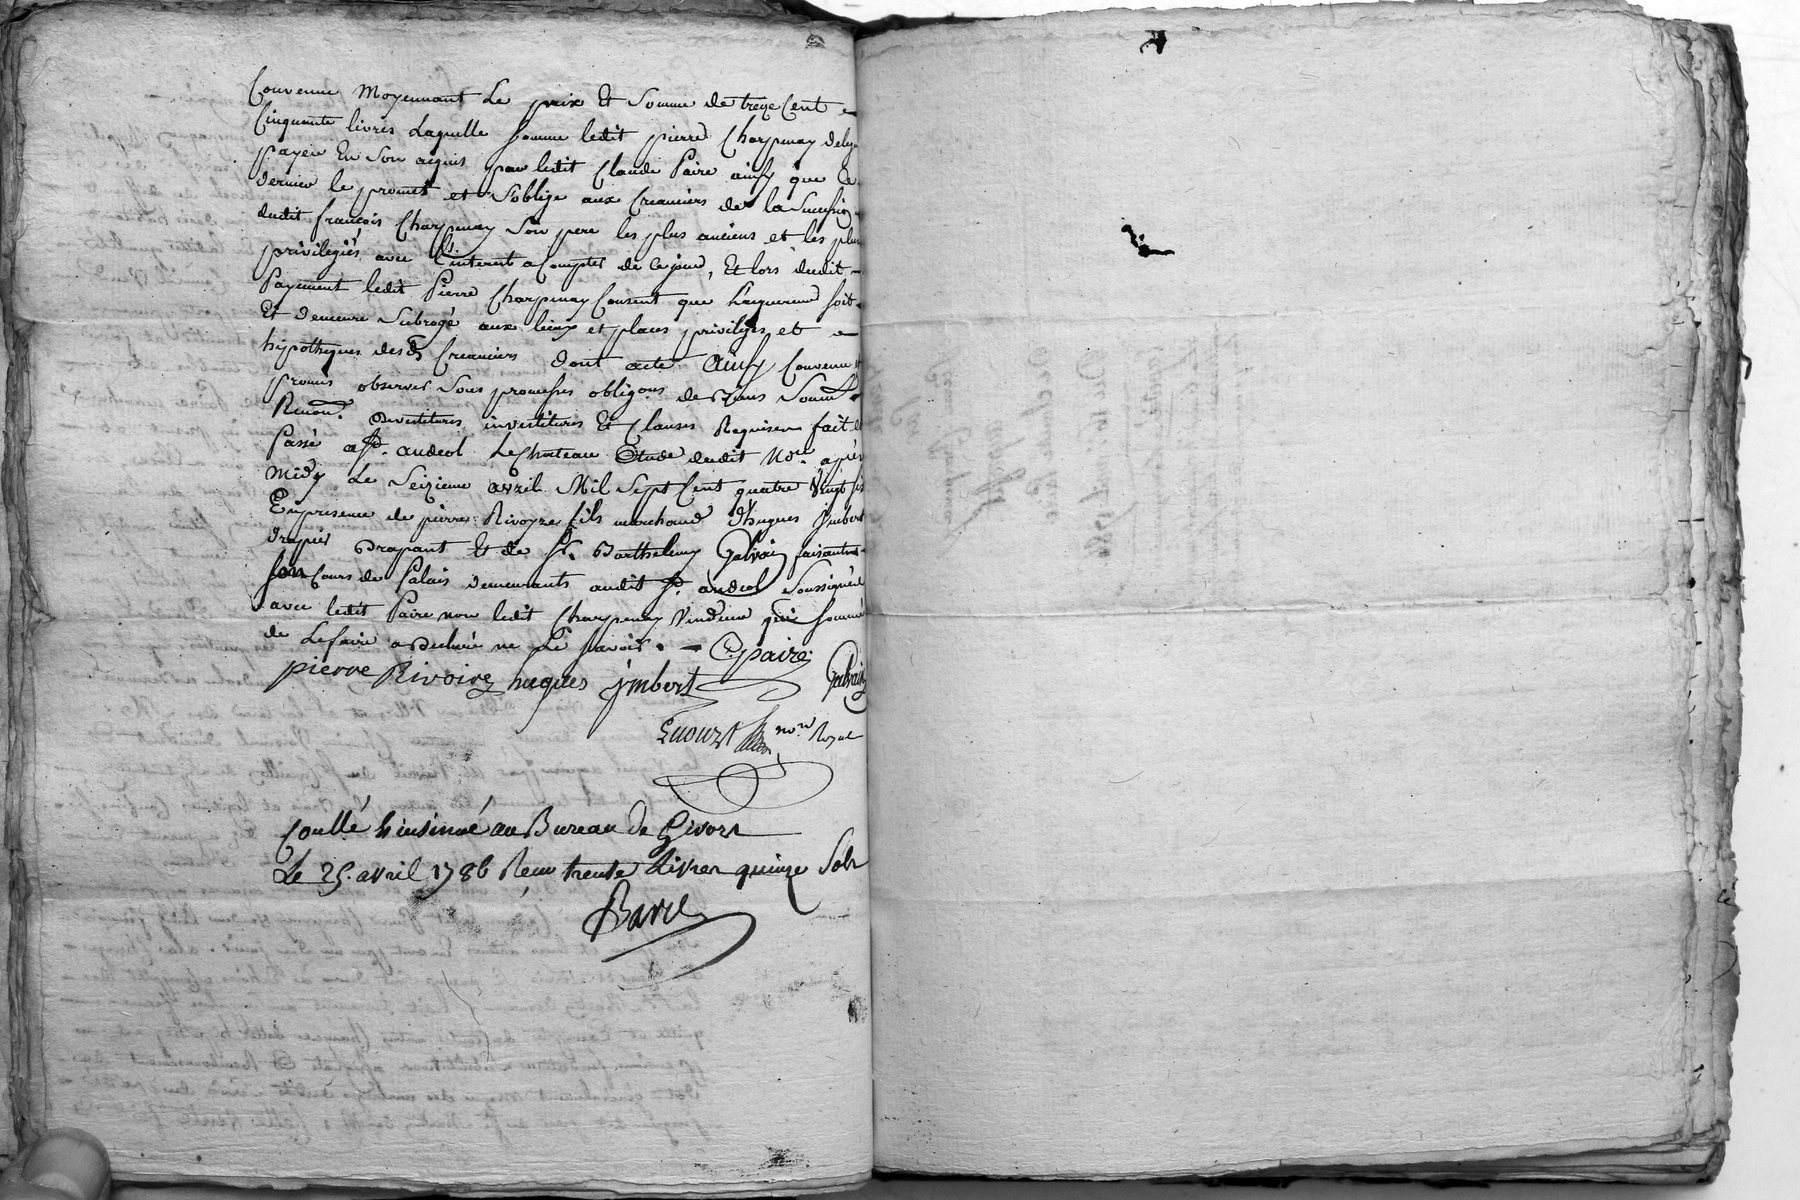 Convenu Moyennant Le prix et Somme de treze Cent
Cinquante livres Laquelle Somme ledit pierre Charpenay
payer En Son acquis par ledit Claude Paire ainsy que Ce
dernier le promet et S'oblige aux Creanciers de la Succession
dudit françois Charpenay Son pere les plus anciens et les plus
privilegiés avec L'interest a Compter de Ce jour, Et lors dudit
Payement ledit Pierre Charpenay Consent que L'acquereur soit
Et demeure Subrogé aux lieux et places privileges et
hipotheques desd. Creanciers dont acte Ainsy Convenu
promis observer Sous promesses obligaons. de Biens Soum.
Renon. devestitures investitures Et Clauses Requises fait et
Passé a St. andeol Le Chateau Etude dudit Nore. après
Midy Le Seizieme avril Mil Sept Cent quatre Vingt six
En presence de pierre Rivoyre fils marchand d'hugues ymbert
Drapant Et de Sr. Barthelemy Galvain faisant
Son Cours de Palais demeurants audit St. andeol Soussignés
avec ledit Paire non ledit Charpenay Vendeur qui Sommé
de Le faire a Declaré ne Le Savoir. C paire
pierre Rivoire hugues ymbert Galvain
nore. Royal
Conllé & insinué au Bureau de Givors
Le 25. avril 1786 Recu trente Livres quinze Sols